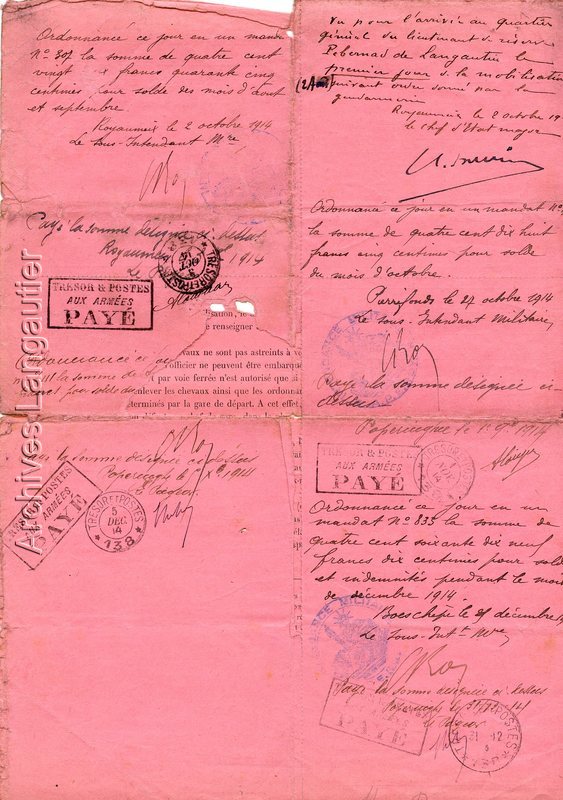 Ordonnancé ce jour en un mandat
N° 307 la somme de quatre cent
vingt six francs quarante cinq
centimes pour solde des mois d'août
et septembre
Royaumeix le 2 octobre 1914
Le Sous-Intendant Mre
Payé la somme désignée ci dessus
Royaumeix 1914
TRESOR ET POSTES
TRESOR & POSTES
AUX ARMÉES
PAYÉ
ilisation, le
e renseigner
evaux ne sont pas astreints à v
officier ne peuvent être embarqu
t par voie ferrée n'est autorisé que si
enlever les chevaux ainsi que les ordonnan
terminés par la gare de départ. A cet effet,
Ordonnancé ce
la somme de
pour solde
Payé la somme désignée ci dessous
1914
Le Payeur
TRESOR & POSTES
AUX ARMÉES
PAYÉ
TRESOR ET POSTES
5
DEC
14
* 138 *
Vu pour l'arrivée au quartier
général du lieutenant de réserve
de Langautier le
premier jour de la mobilisation
(2 Août)
suivant ordre donné par la
gendarmerie
Royaumeix le 2 octobre 19
Le chef d'Etat major
Ordonnancé ce jour en un mandat N°
la somme de quatre cent dix huit
francs cinq centimes pour solde
du mois d'octobre.
Pierrefonds le 27 octobre 1914
Le Sous-Intendant Militaire
Payé la somme désignée ci
dessus
1914
TRESOR & POSTES
AUX ARMÉES
PAYÉ
TRESOR ET POSTES
1
NOV
14
Ordonnancé ce jour en un
mandat N° 835 la somme de
quatre cent soixante dix neuf
francs dix centimes pour solde
et indemnités pendant le mois
de décembre 1914.
Boeschèpe le 29 décembre 19
Le Sous-Intt Mre
Payé la somme désignée ci dessus
le 31/12/14
Le Payeur
PAYÉ
POSTES
31 12
Archives Langautier